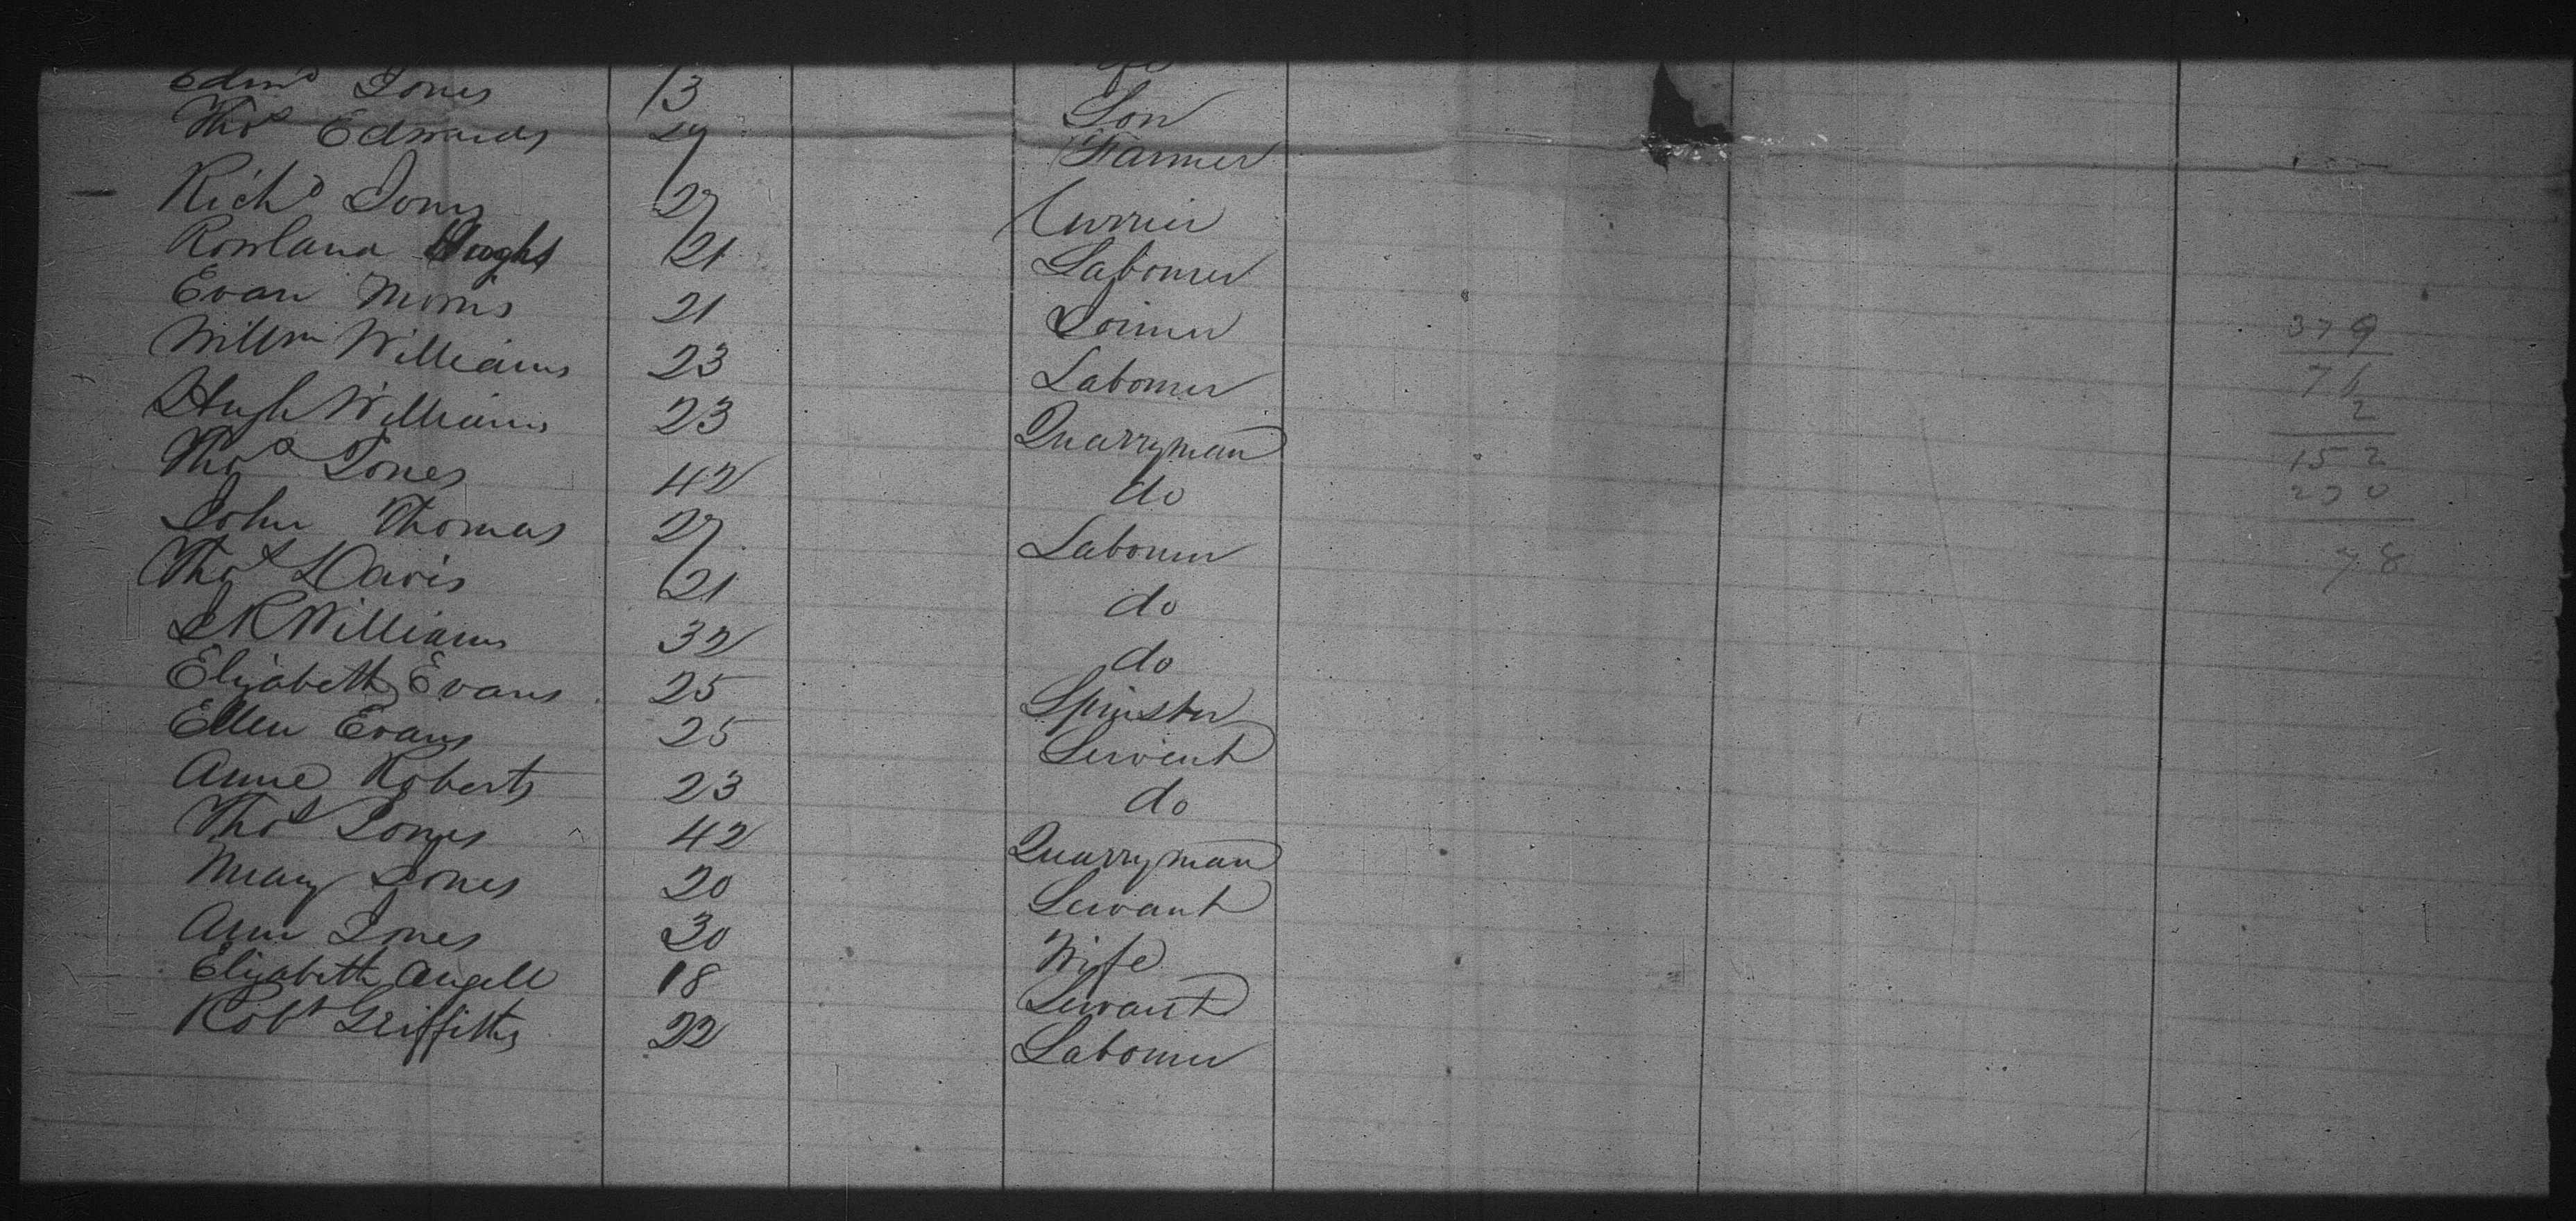 Edmd Jones 13 Son
Thos Edwards 29 Farmer
Richd Jones 27 Currier
Rowland Hughs 21 Labourer
Evan Morris 21 Joiner
Willm Williams 23 Labourer
Hugh Williams 23 Quarryman
Thos Jones 42 do
John Thomas 27 Labourer
Thos Davis 21 do
J R Williams 32 do
Elizabeth Evans 25 Spinster
Ellen Evans 25 Servent
Anne Roberts 23 do
Thos Jones 42 Quarryman
Mary Jones 20 Servant
Ann Jones 30 Wife
Elizabeth Angell 18 Servant
Robt Griffiths 22 Labourer
379
76
2
152
230
78